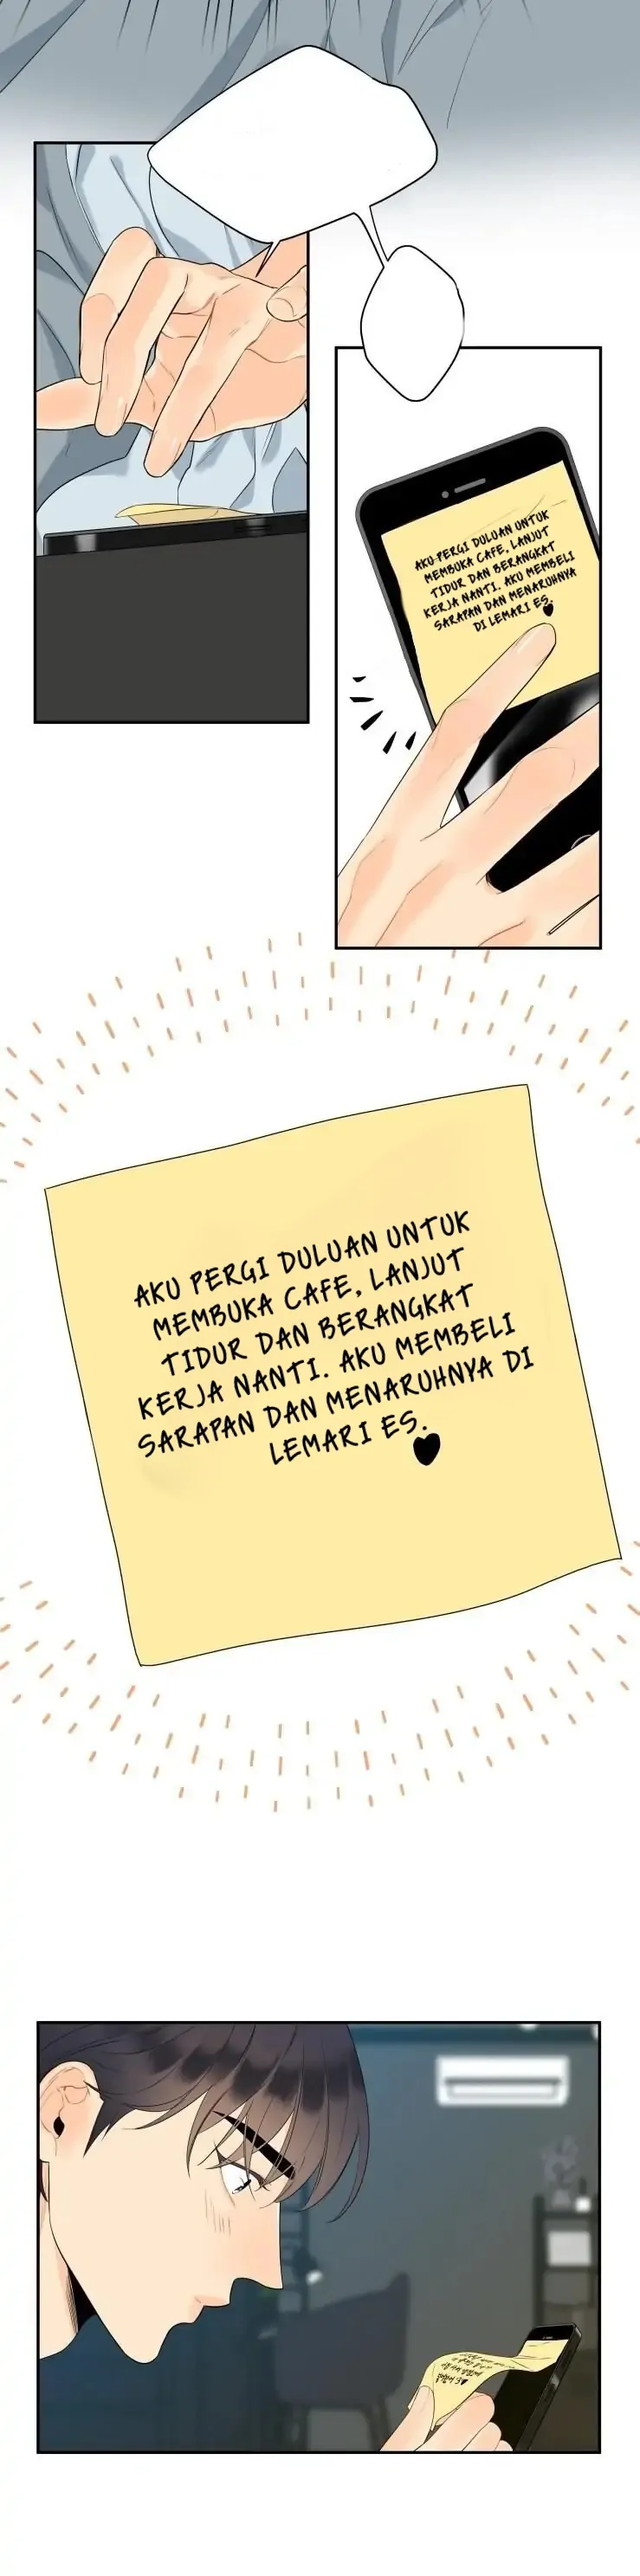 AKU PERGI DULUAN UNTUK
MEMBUKA CAFE, LANJUT
TIDUR DAN BERANGKAT
KERJA NANTI. AKU MEMBELI
SARAPAN DAN MENARUHNYA
DI LEMARI ES.
AKU PERGI DULUAN UNTUK
MEMBUKA CAFE, LANJUT
TIDUR DAN BERANGKAT
KERJA NANTI. AKU MEMBELI
SARAPAN DAN MENARUHNYA DI
LEMARI ES.